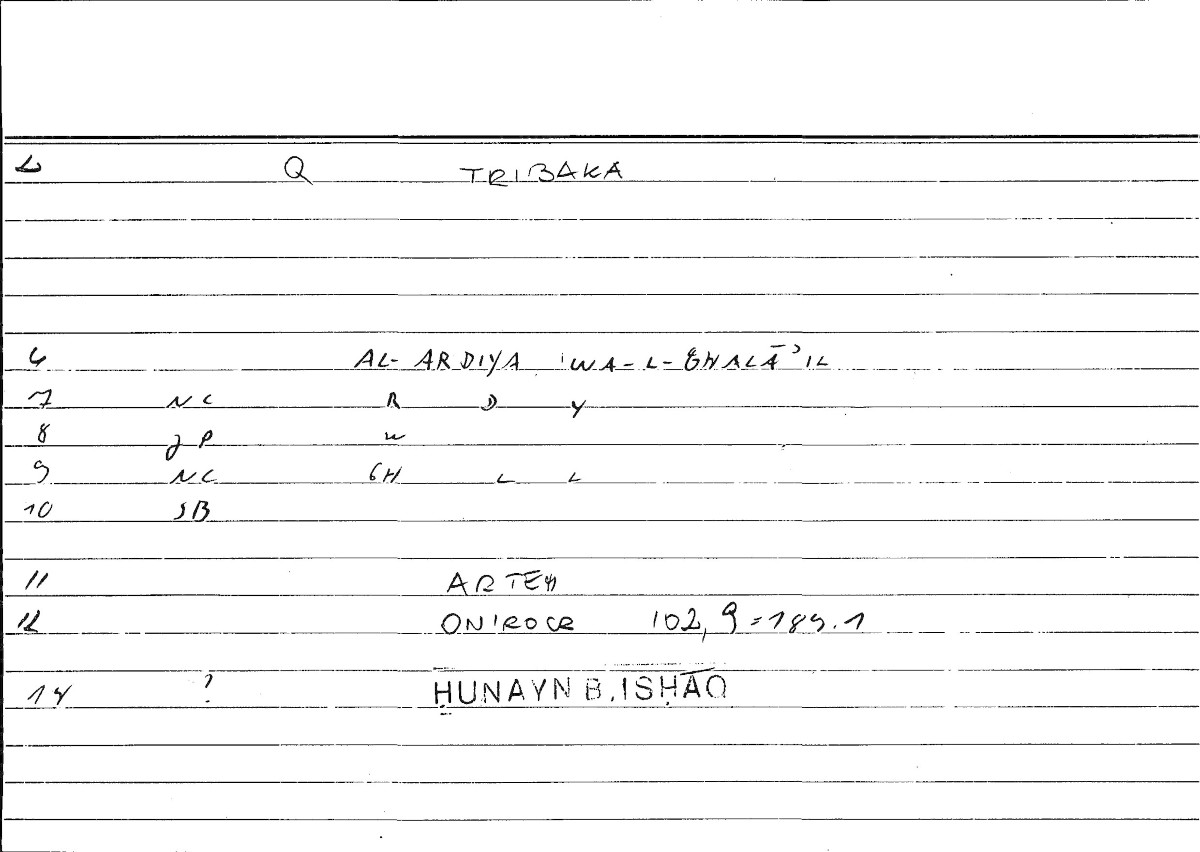 2 Q TRIBAKA
6 AL-ARDIYA WA-L-GHALĀ'IL
7 NC R D Y
8 JP W
9 NC GH L L
10 SB
11 ARTEM
12 ONIROCR 102,9=189.1
14 ? ḤUNAYN B. ISḤĀQ